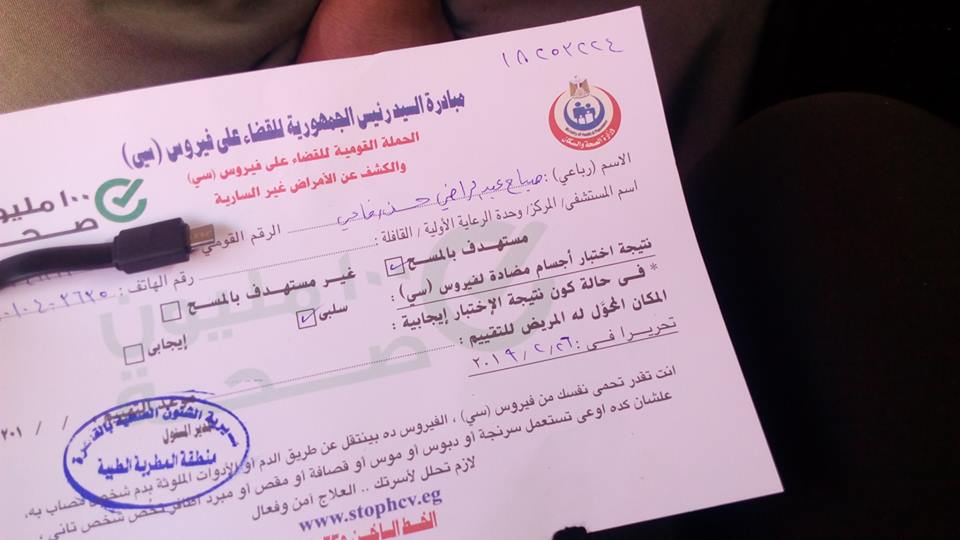 ١٨٢٥٢٢٢٤
وزارة الصحة والسكان
Ministry of Health & Population
مبادرة السيد رئيس الجمهورية للقضاء على فيروس (سي)
الحملة القومية للقضاء على فيروس (سي)
والكشف عن الأمراض غير السارية
١٠٠ مليون
صحة
الاسم (رباعي) : صباح عبد الراضي حسن
الرقم القومي
اسم المستشفى/ المركز/ وحدة الرعاية الأولية / القافلة :
رقم الهاتف :
مستهدف بالمسح
غير مستهدف بالمسح
نتيجة اختبار أجسام مضادة لفيروس (سي) :
سلبى
إيجابى
* فى حالة كون نتيجة الإختبار إيجابية :
المكان المحوَّل له المريض للتقييم :
تحريرا فى : ٢٠١٩/٢/٢٦
موعد التقييم / / ٢٠١
مديرية الشئون الصحية بالقاهرة
مدير المسئول
منطقة المطرية الطبية
انت تقدر تحمى نفسك من فيروس (سي) ، الفيروس ده بينتقل عن طريق الدم أو الأدوات الملوثة بدم شخص مصاب به.
علشان كده اوعى تستعمل سرنجة أو دبوس أو موس أو قصافة أو مقص أو مبرد أظافر تخص شخص تاني ،
لازم تحلل لأسرتك .. العلاج آمن وفعال
www.stophcv.eg
الخط الساخن